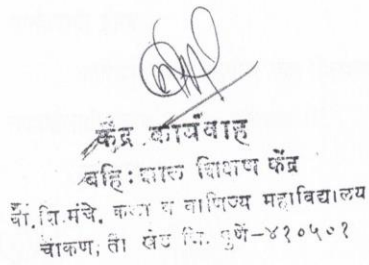 केंद्र कार्यवाह
बहि:शाल शिक्षण केंद्र
बी.शि.मंचे. कला व वाणिज्य महाविद्यालय
चाकण, ता खेड जि. पुणें-४१०५०१